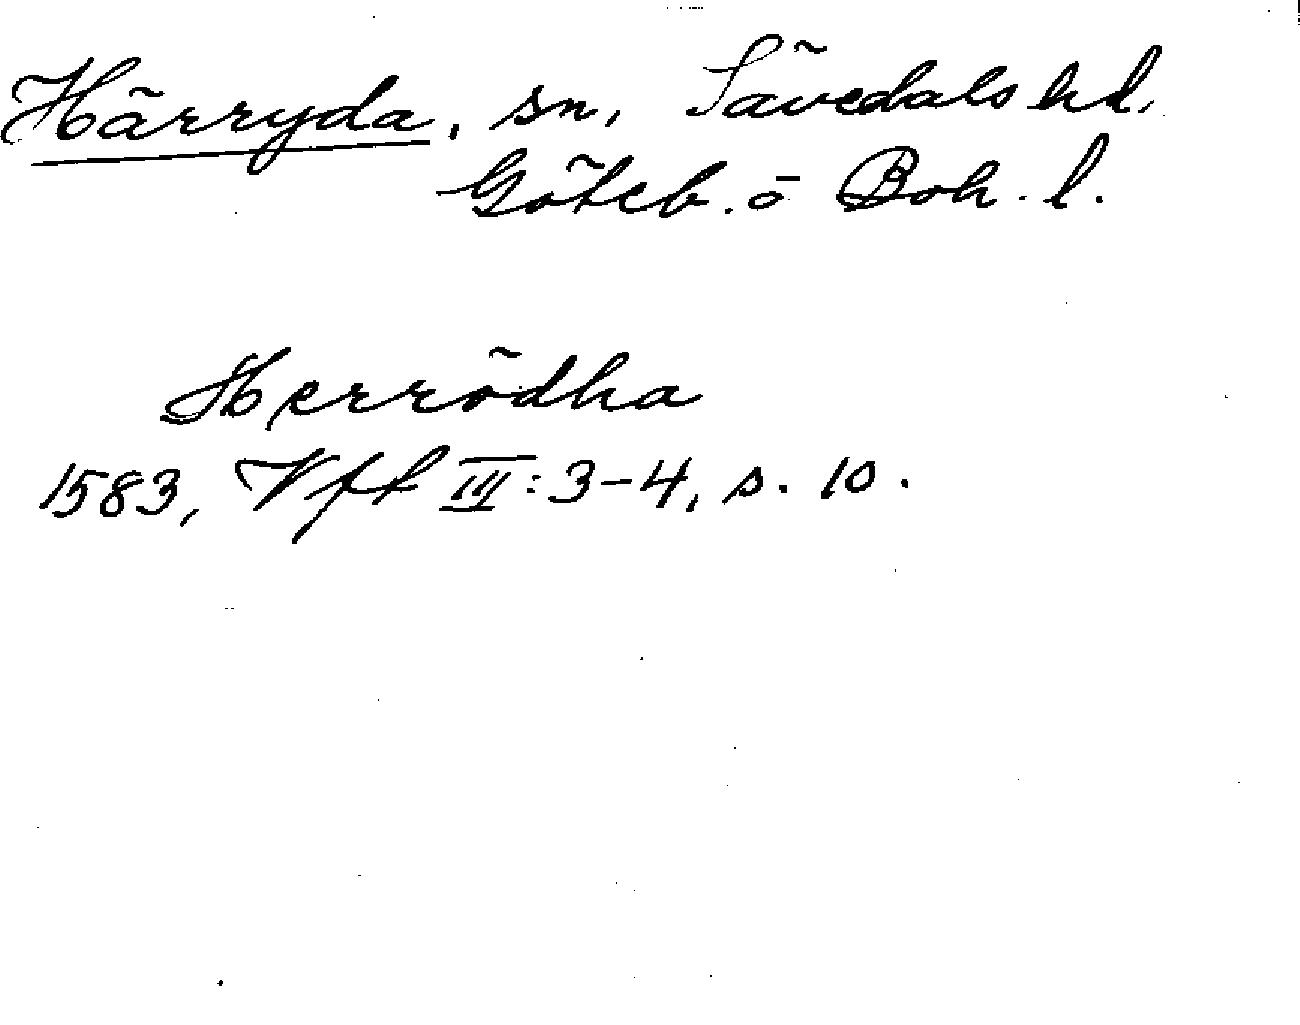 Härryda, sn, Sävedals hd,
Göteb. ö Boh. l.
Herrödha
1583, Vft III:3-4, s. 10.